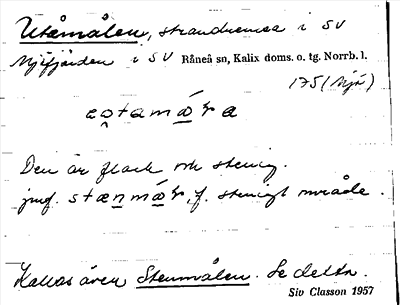 Utåmålen, strandremsa i SV
Mjöfjärden i SV Råneå sn, Kalix doms. o. tg. Norrb. l.
175 (Mjö)
Den är flack och stenig.
jmf. f. stenigt område.
Kallas även Stenmålen. Se detta.
Siv Classon 1957